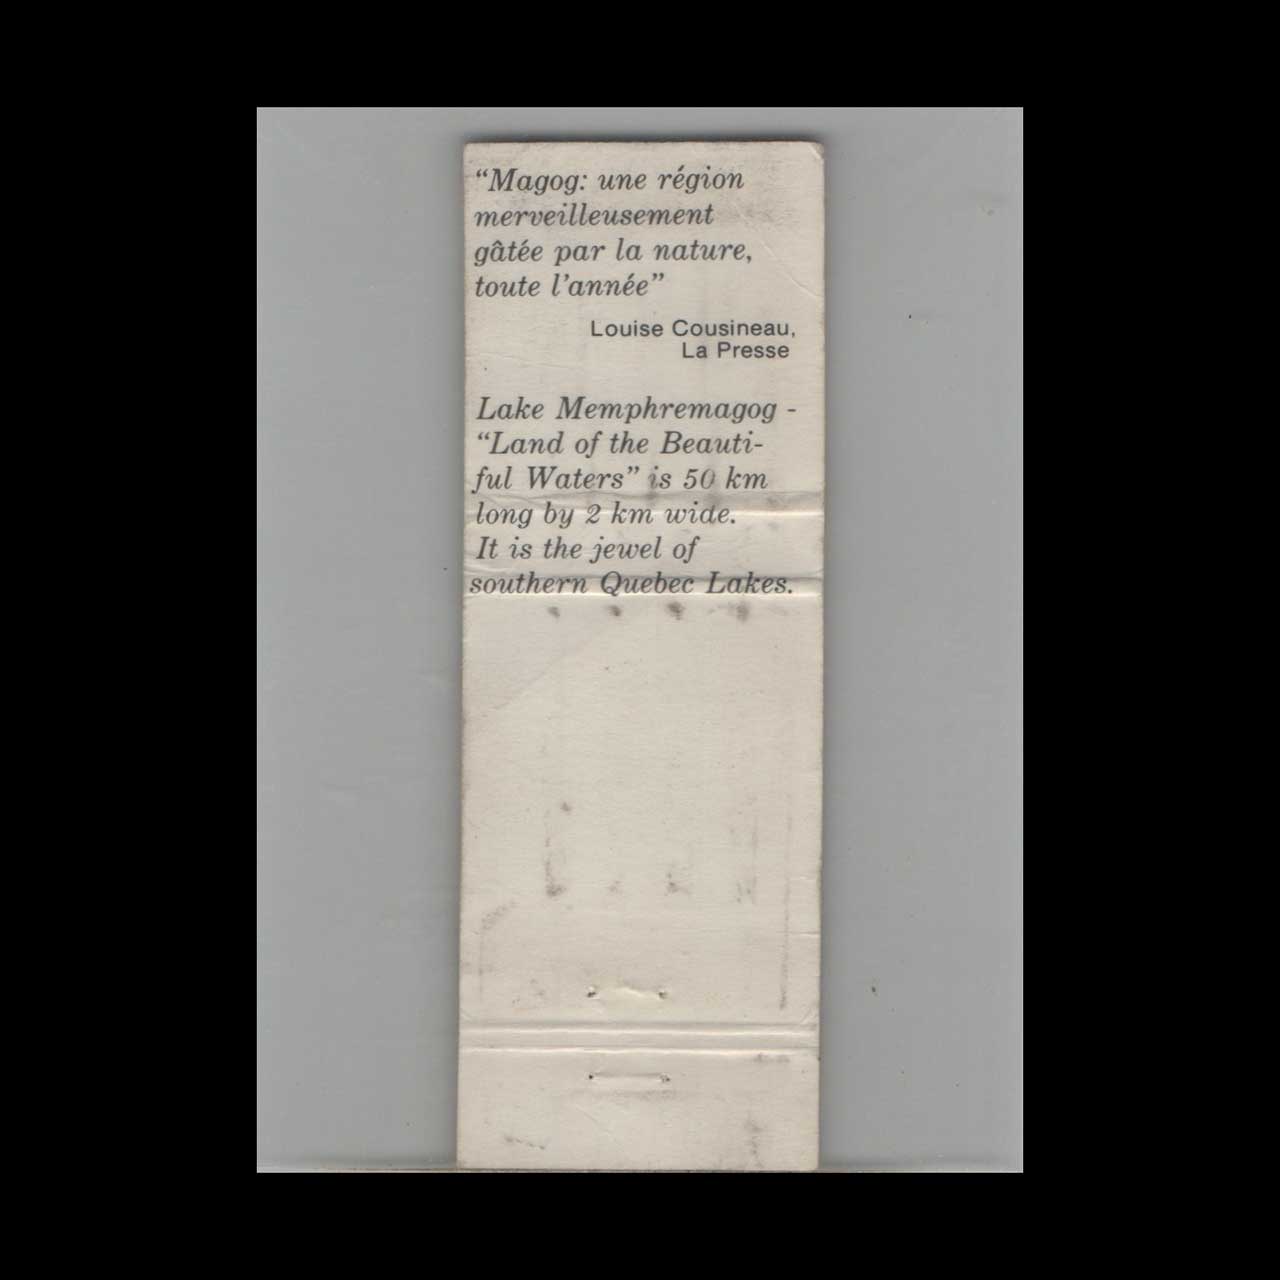 “Magog: une région
merveilleusement
gâtée par la nature,
toute l’année”
Louise Cousineau,
La Presse
Lake Memphremagog -
“Land of the Beauti-
ful Waters” is 50 km
long by 2 km wide.
It is the jewel of
southern Quebec Lakes.